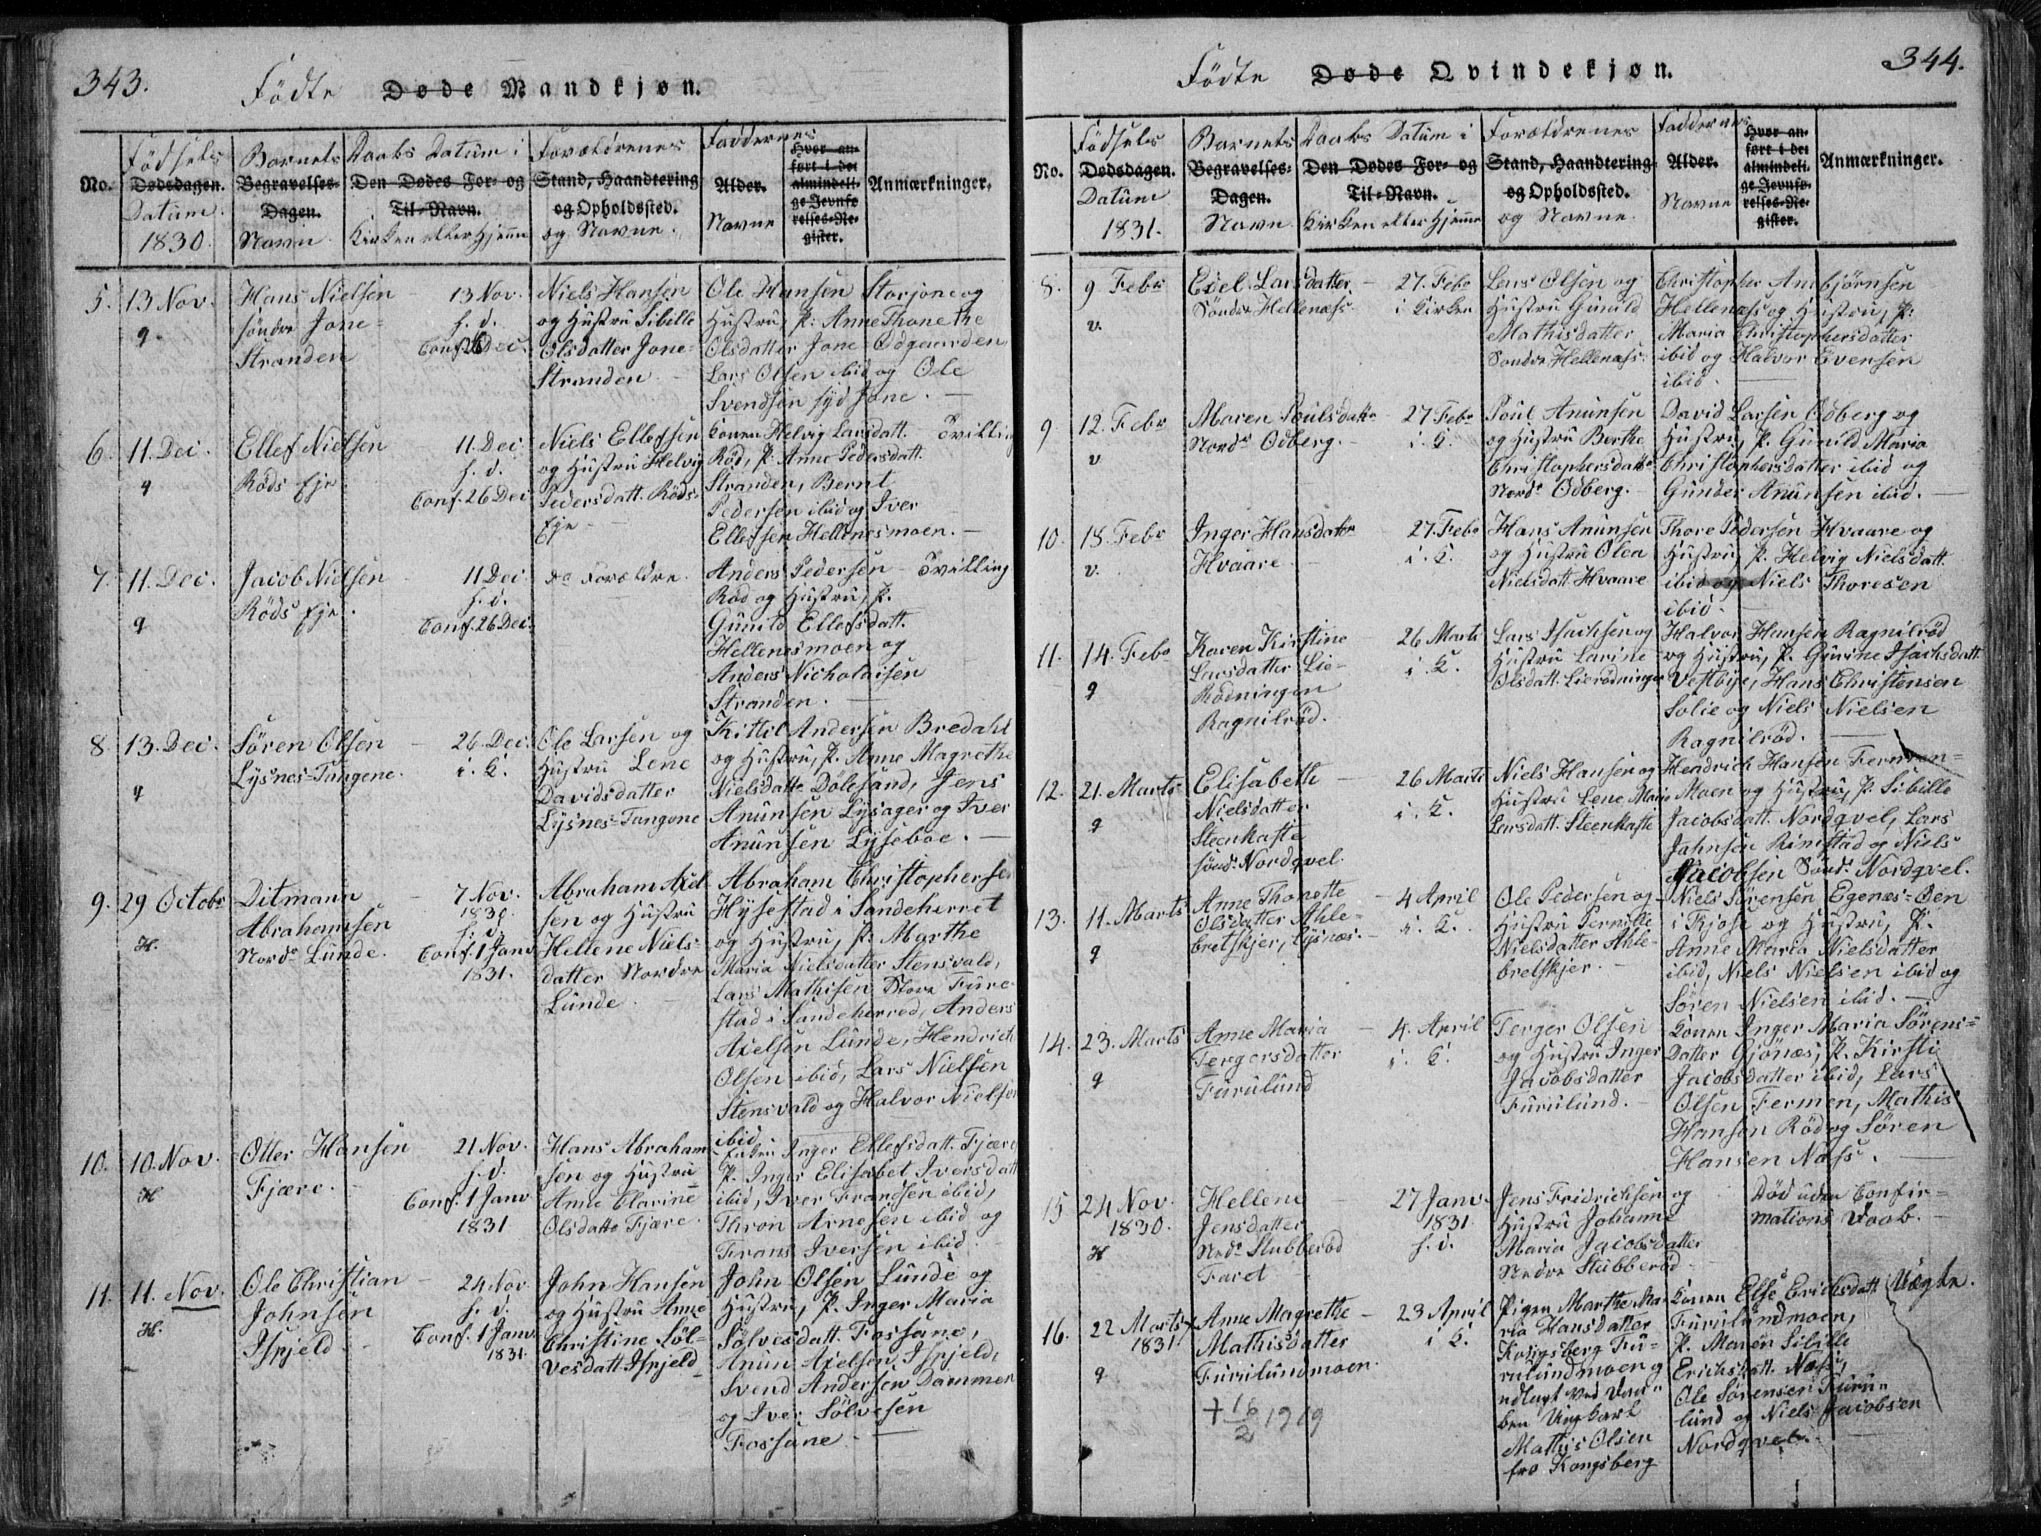 343.
Födte Døde Mandkjøn.
No.
Födsels
Dødsdagen.
Datum
1830.
Barnets
Begravelses-
Dagen.
Navn
Daabs Datum i
Den Dødes For- og
Til-Navn.
Kirken eller Hjemme
Forældrenes
Stand, Haandtering
og Opholdssted.
og Navne.
Faddernes
Alder.
Navne
Hvor an-
ført i det
almindeli-
ge Jevnfø-
relses-Re-
gister.
Anmærkninger.
5. 13 Nov.
q.
Hans Nielsen
søndre Jone-
Stranden
13 Nov.
h. d.
Conf. Dec.
Niels Hansen
og Hustru Sibille
Olsdatter Jone-
Stranden.
Ole Hansen Storjone og
Hustru, P. Anne Thonette
Olsdatter Jone-Odgaarden
Lars Olsen ibid og Ole
Svendsen syd Jone.
6. 11. Dec.
q
Ellef Nielsen
Röds Eje
11. Dec.
h. d.
Conf. 26 Dec
Niels Ellefsen
og Hustru Helvig
Pedersdatt. Röds-
Eje
Konen Helvig Larsdatt.
Röd, P. Anne Pedersdatt.
Stranden, Bernt
Pedersen ibid og Iver
Ellefsen Hellenesmoen.
Tvilling
7. 11. Dec.
q
Jacob Nielsen
Röds Eje.
11 Dec.
h. d.
Conf. 26 Dec.
do Forældre.
Anders Pedersen
Röd og Hustru, P.
Gunild Ellefsdatt.
Hellenesmoen og
Anders Nicholaisen
Stranden.
Tvilling
8 13. Dec.
q
Sören Olsen
Lysnes-Tangene.
26. Dec.
i. K.
Ole Larsen og
Hustru Lene
Davidsdatter
Lysnes-Tangene
Kittil Andersen Bredahl
og Hustru, P. Anne Magrethe
Nielsdatt. Dölesund, Jens
Anunsen Lysager og Iver
Anunsen Lyseboe.
9. 29 Octobr
H.
Ditmann
Abrahamsen
Nordr Lunde.
7 Nov.
1830.
h. d.
Conf. 1 Janv
1831.
Abraham Axel
sen og Hustru
Hellene Niels-
datter Nordre
Lunde
Abraham Christophersen
Hysestad i Sandeherret
og Hustru, P. Marthe
Maria Nielsdatter Stensvald,
Lars Mathisen Store Fure-
stad i Sandeherred, Anders
Axelsen Lunde, Hendrich
Olsen ibid, Lars Nielsen
Stensvald og Halvor Nielsen
ibid
10. 10. Nov.
H
Otter Hansen
Fjære.
21 Nov.
h. d.
Conf. 1 Janv
1831
Hans Abraham
sen og Hustru
Anne Clarine
Olsdatt. Fjære.
Inger Ellefsdatt. Fjære
P. Inger Elisabet Iversdatt
ibid, Iver Frandsen ibid,
Thron Arnesen ibid og
Frans Iversen ibid.
11. 11. Nov.
H.
Ole Christian
Johnsen
Ispjeld
24 Nov
h. d.
Conf. 1 Janv
1831.
John Hansen
og Hustru Anne
Christine Söl-
vesdatt Ispjeld
John Olsen Lunde og
Hustru, P. Inger Maria
Sölvesdatt. Fossane,
Anun Axelsen Ispjeld,
Svend Andersen Dammen
og Iver Sölvesen
Fossane.
344.
Födte Døde Qvindekjøn.
No.
Födsels
Dødsdagen.
Datum
1831.
Barnets
Begravelses-
Dagen.
Navn
Daabs Datum i
Den Dødes For- og
Til-Navn.
Kirken eller Hjemme
Forældrenes
Stand, Haandtering
og Opholdssted.
og Navne.
Faddernes
Alder.
Navne
Hvor an-
ført i det
almindeli-
ge Jevnfø-
relses-Re-
gister.
Anmærkninger.
8. 9 Febr
v.
Larsdatter
Söndre Hellenæss
27. Febr
i Kirken
Lars Olsen og
Hustru Gunild
Mathisdatter
Söndre Hellenæss.
Christopher Ambjörnsen
Hellenæss og Hustru, P.
Maria Christophersdatter
ibid og Halvor Evensen
ibid.
9 12. Febr
v
Maren Poulsdatt.
Nordr Odberg.
27 Febr
i. K.
Poul Anunsen
og Hustru Berthe
Christophersdatt.
Nordr Odberg.
David Larsen Odberg og
Hustru, P. Gunild Maria
Christophersdatter ibid og
Gunder Anunsen ibid.
10. 18. Febr
v.
Inger Hansdatter
Hvaare
27 Febr
i. K.
Hans Anunsen
og Hustru Olea
Nielsdatt. Hvaare
Thore Pedersen Hvaare og
Hustru, P. Helvig Nielsdatt.
ibid og Niels Thoresen
ibid.
11. 14. Febr
q
Karen Kirstine
Larsdatter Lie-
Rödningen
Ragnilröd.
26 Marts
i. K.
Lars Isachsen og
Hustru Larine
Olsdatt. Lierödningen
Halvor Hansen Ragnilröd
og Hustru, P. Gurine Isachsdatt
Vestbye, Hans Christensen
Solie og Niels Nielsen
Ragnilröd.
12. 21. Marts
q
Elisabeth
Nielsdatter
Steenkaste
sönd. Nordqvel.
26 Marts
i. K.
Niels Hansen og
Hustru Lene Maria
Larsdatt. Steenkaste
Hendrich Hansen
Moen og Hustru, P. Sibille
Jacobsdatt. Nordqvel, Lars
Jahnsen Rimstad og Niels
Jacobsen Sönd. Nordqvel.
13. 11. Marts
q
Anne Thonette
Olsdatter Ahle-
bretskjer, Lysnæs.
4 April
i. K.
Ole Pedersen og
Hustru Pernille
Nielsdatter Ahle-
bretskjer.
Niels Sörensen Egenæs-Öen
i Kjose og Hustru, P.
Anne Maria Nielsdatter
ibid, Niels Nielsen ibid og
Sören Nielsen ibid.
14. 23. Marts
q
Anne Maria
Tergersdatter
Furulund
4. April
i. K.
Terger Olsen
og Hustru Inger
Jacobsdatter
Furulund.
Konen Inger Maria Sörens-
datter Gjönæs, P. Kirsti
Jacobsdatter ibid, Lars
Olsen Fermen, Mathis
Hansen Röd og Sören
Hansen Næss.
15 24 Nov.
1830.
H
Hellene
Jensdatter
Nedr Stubberöd
Faret
27 Janv.
1831
h. d.
Jens Fridrichsen og
Hustru Johanne
Maria Jacobsdatter
Nedre Stubberöd
Död uden Confir-
mations Daab.
16. 22 Marts
1831.
q
Anne Magrethe
Mathisdatter
Furulundmoen.
+ 16/2 1919
23 April
i K.
Pigen Marthe Ma-
ria Hansdatter
Kongsberg Fu-
rulundmoen og
udlagt ved Daa-
ben Ungkarl
Mathis Olsen
fra Kongsberg
Konen Else Erichsdatt
Furulundmoen,
P. Maren Sibille
Erichsdatt. Næss,
Ole Sörensen Furu-
lund og Niels Jacobsen
Nordqvel.
Uægte.